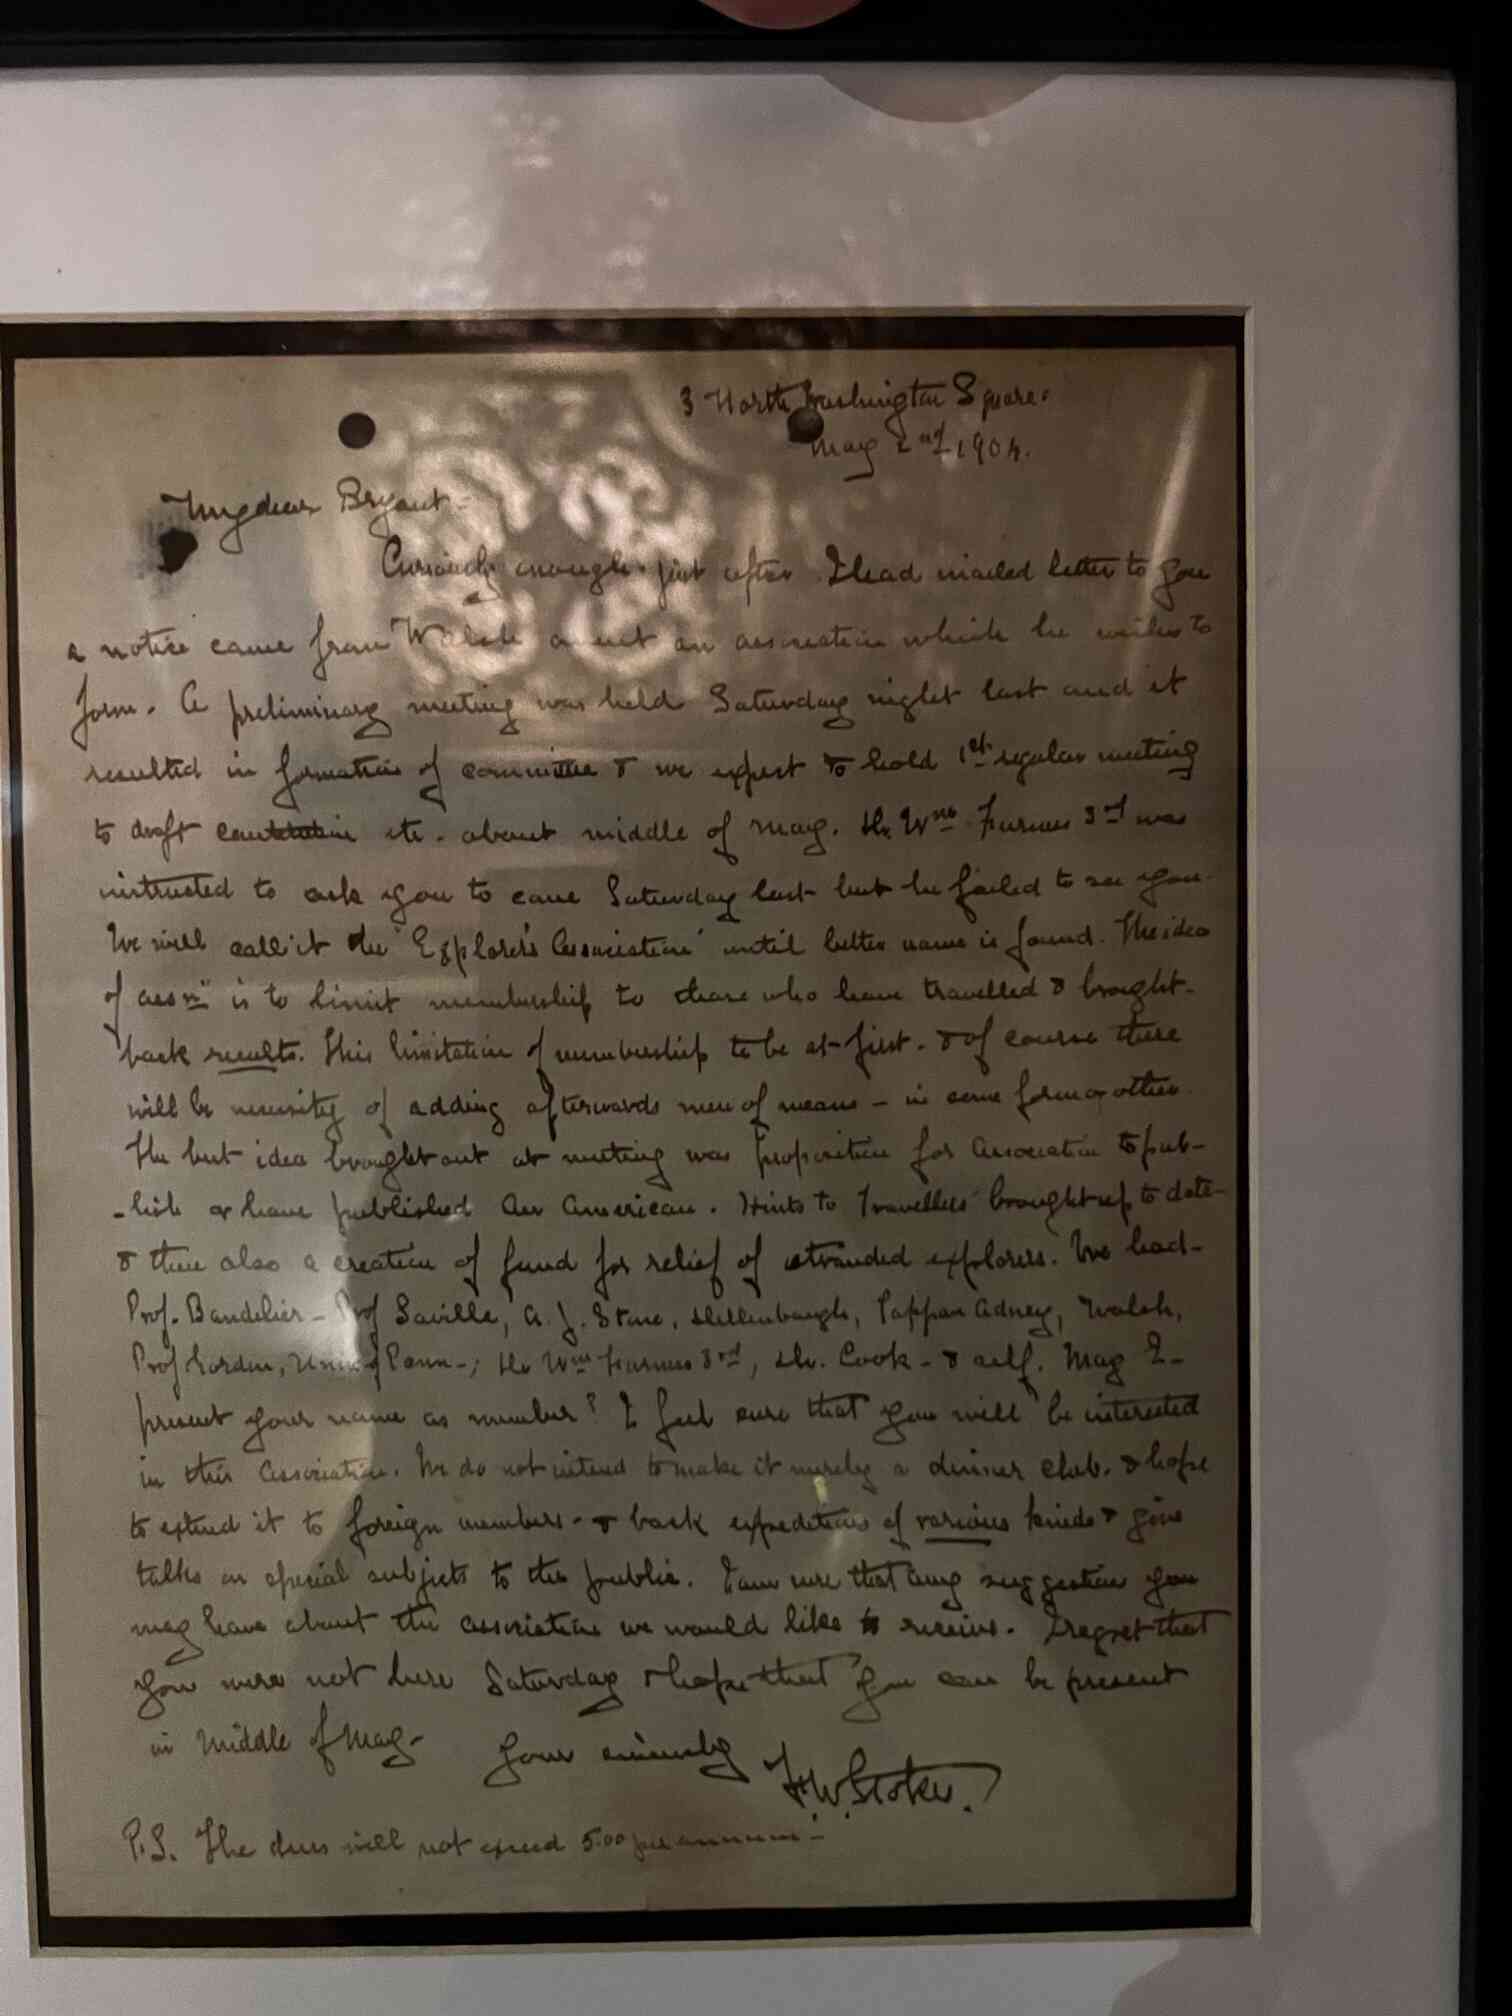 3 North Washington Square.
May 2nd, 1904.
My dear Bryant -
Curiously enough - just after I had mailed letter to you
a notice came from Walsh anent an association which he wishes to
form. A preliminary meeting was held Saturday night last and it
resulted in formation of committee & we expect to hold 1st regular meeting
to draft etc. about middle of May. Dr. Wm. Furness 3rd was
instructed to ask you to come Saturday last but he failed to see you.
We will call it the "Explorer's Association" until better name is found. The idea
of assn is to limit membership to those who have travelled & brought-
back results. This limitation of membership to be at first. & of course there
will be necessity of adding afterwards men of means - in some form or other.
The best idea brought out at meeting was proposition for Association to pub-
-lish or have published an American "Hints to Travellers" brought up to date-
& then also a creation of fund for relief of stranded explorers. We had-
Prof. Bandelier - Prof Saville, A. J. Stone, Dellenbaugh, Tappan Adney, Walsh,
Prof Gordon, Univ of Penn -; Dr Wm Furness 3rd, Dr. Cook - & self. May I -
present your name as member? I feel sure that you will be interested
in this Association. We do not intend to make it merely a dinner club. & hope
to extend it to foreign members - & back expeditions of various kinds & give
talks on special subjects to the public. I am sure that any suggestion you
may have about the association we would like to receive. I regret that
you were not here Saturday & hope that you can be present
in Middle of May - Yours sincerely F. W. Stokes.
P.S. The dues will not exceed 5.00 per annum -